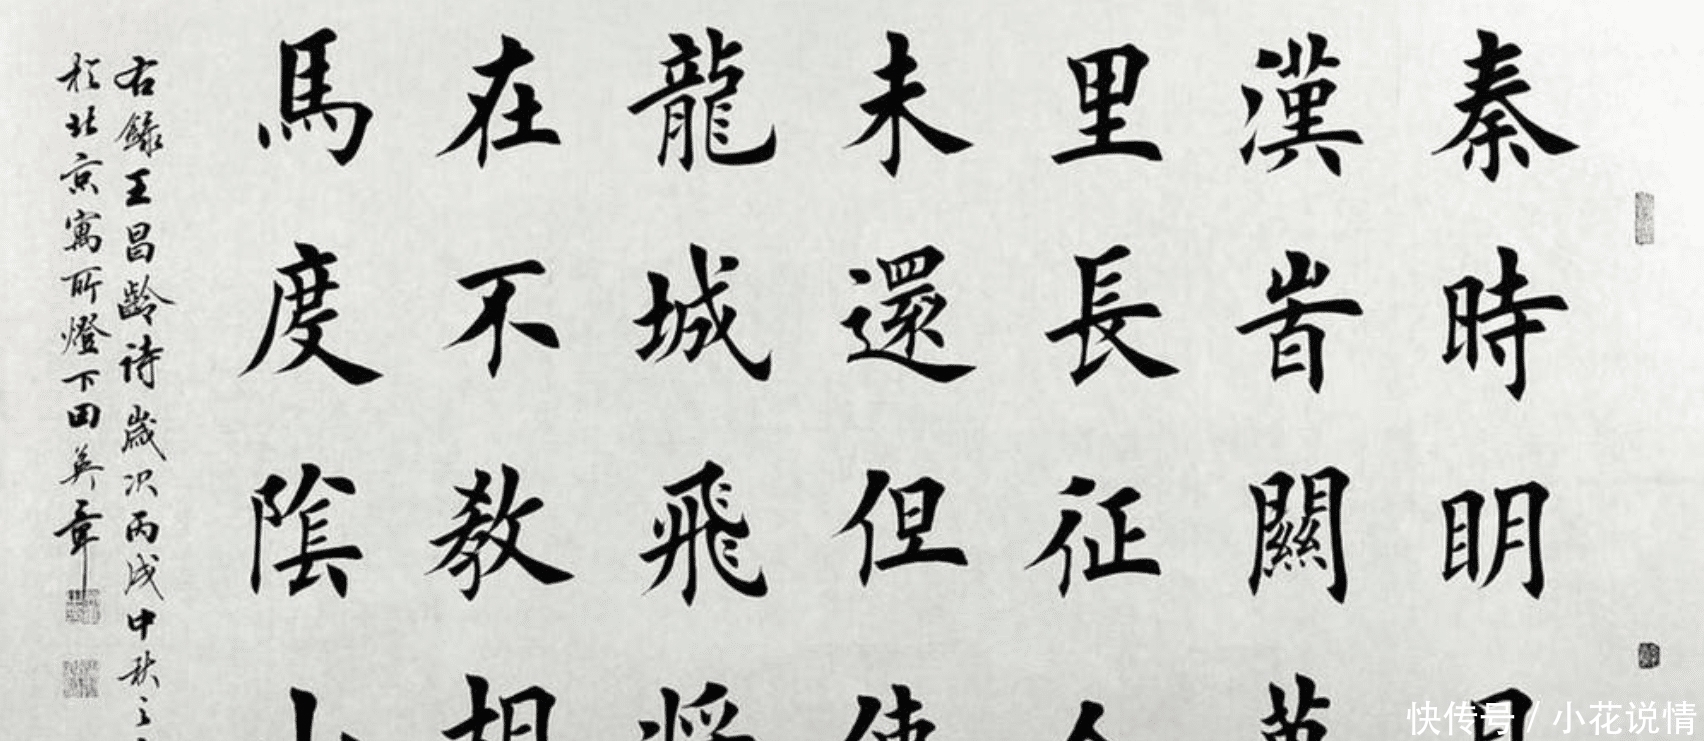 秦時明月
漢旹關萬
里長征人
未還但使
龍城飛將
在不教胡
馬度陰山
右錄王昌齡詩歲次丙戌中秋之
於北京寓所燈下田英章
快传号 / 小花说情